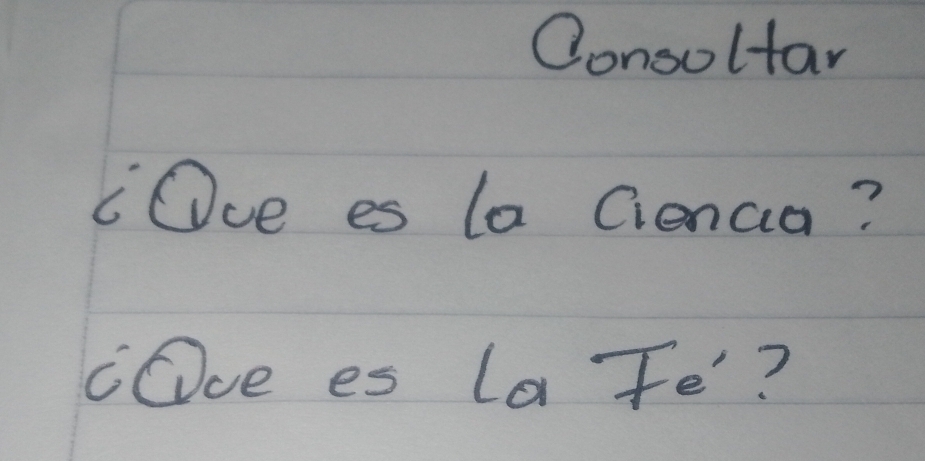 Consultar
¿Que es la Ciencia?
¿Que es la Fé?